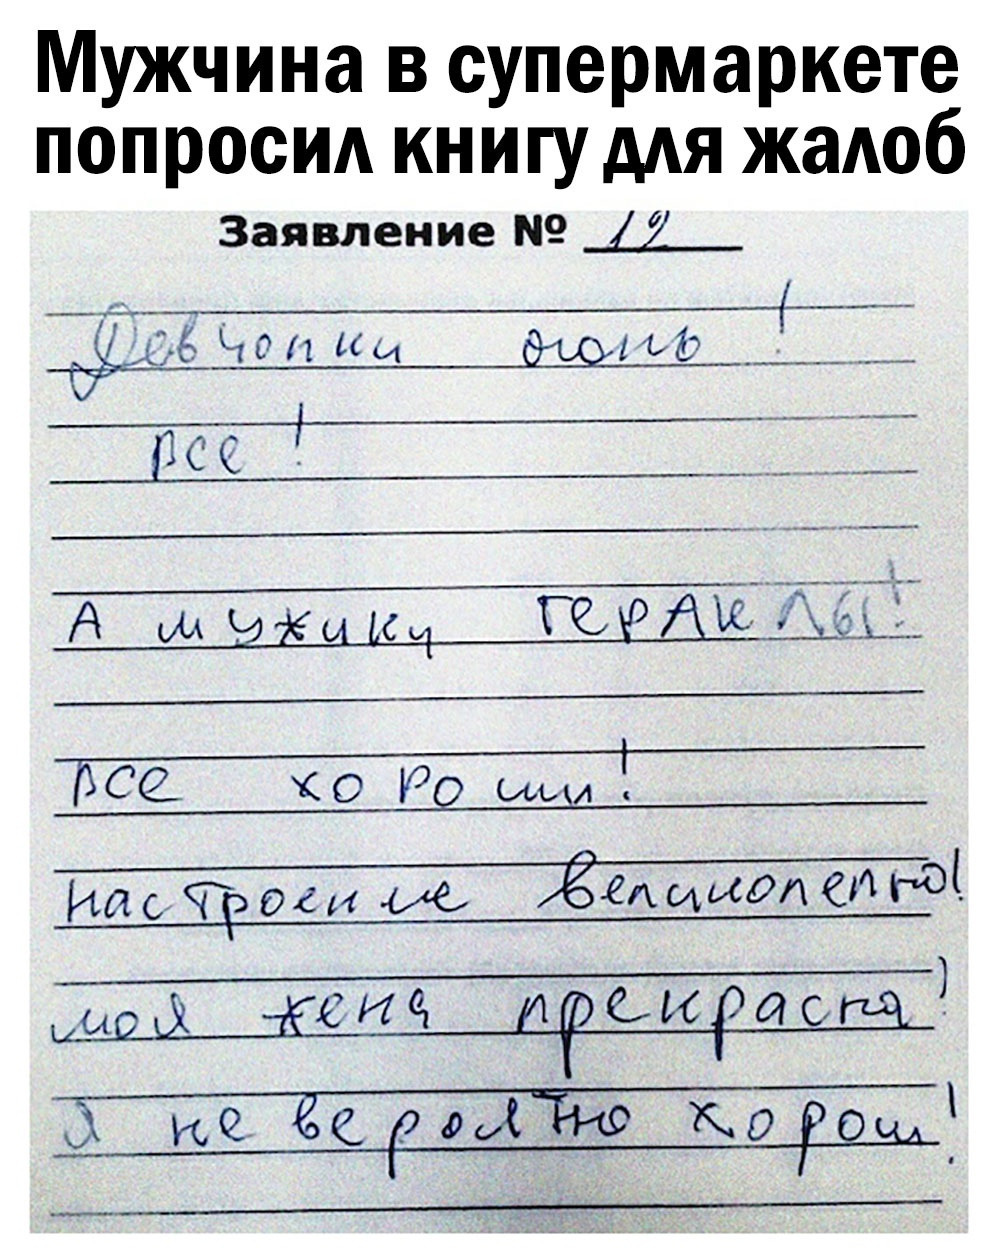 Мужчина в супермаркете
попросил книгу для жалоб
Заявление № 19
Девчонки огонь!
все!
А мужики гераклы!
все хороши!
настроение великолепно!
моя жена прекрасна!
Я не вероятно хорош!